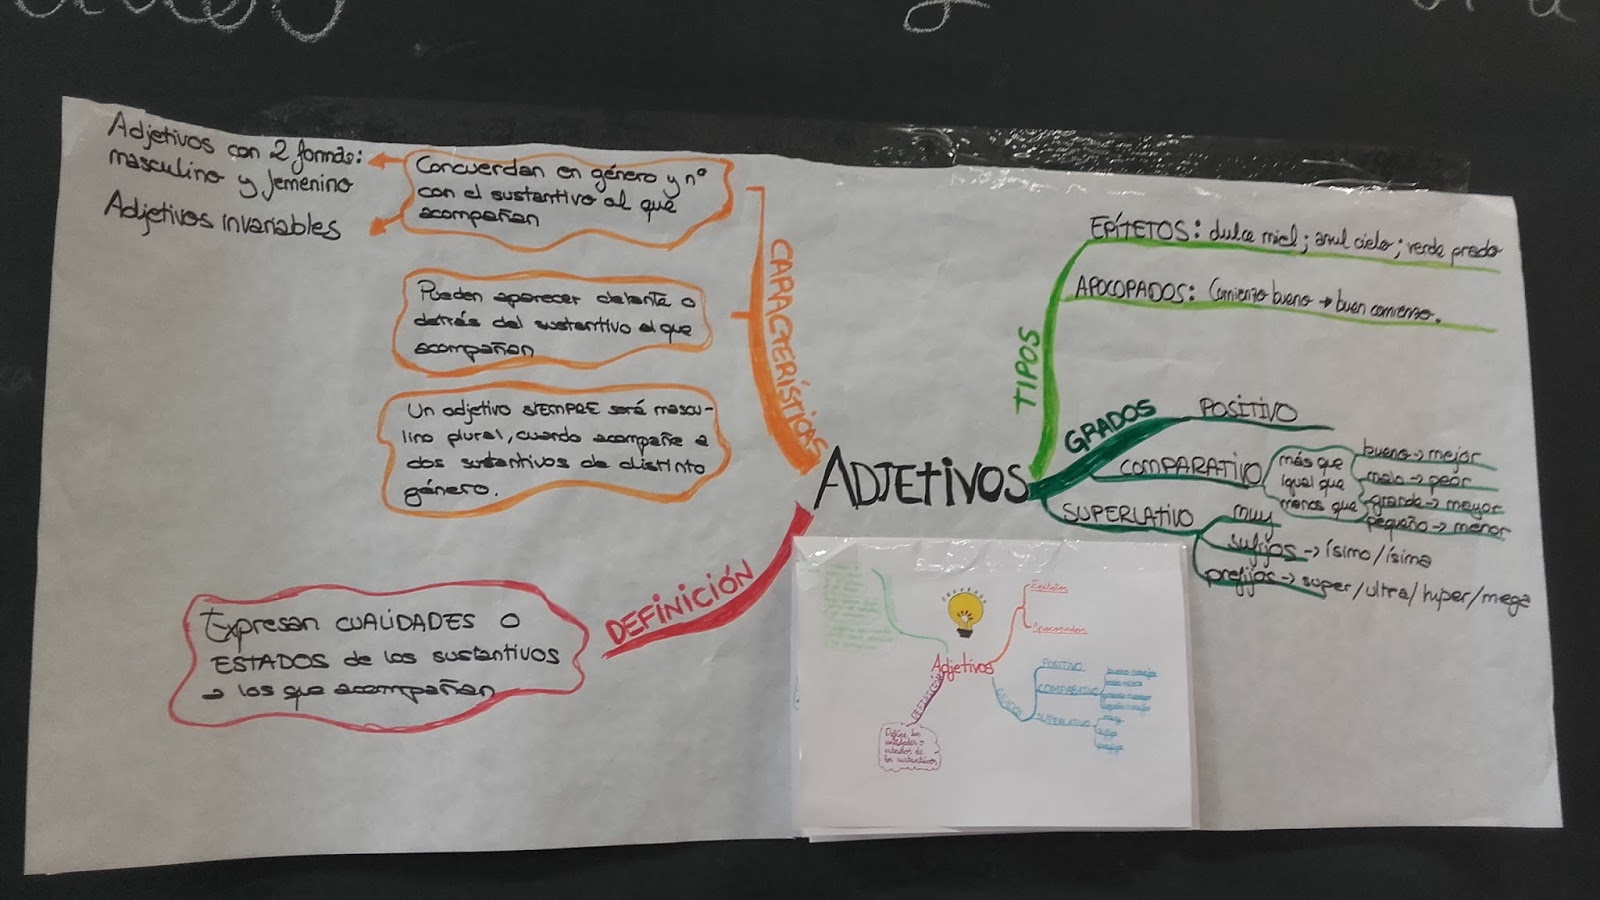 Adjetivos con 2 formas:
masculino y femenino
Adjetivos invariables
Concuerdan en género y nº
con el sustantivo al que
acompañan
Pueden aparecer delante o
detrás del sustantivo al que
acompañan
Un adjetivo SIEMPRE será mascu-
lino plural, cuando acompañe a
dos sustantivos de distinto
género.
CARACTERÍSTICAS
DEFINICIÓN
Expresan CUALIDADES O
ESTADOS de los sustantivos
a los que acompañan
ADJETIVOS
TIPOS
EPÍTETOS: dulce miel; azul cielo; verde prado
APOCOPADOS: Comienzo bueno → buen comienzo.
GRADOS
POSITIVO
COMPARATIVO
más que
igual que
menos que
bueno → mejor
malo → peor
grande → mayor
pequeño → menor
SUPERLATIVO
muy
sufijos → ísimo/ísima
prefijos → super/ultra/hiper/mega
Adjetivos
Epítetos
Apocopados
POSITIVO
COMPARATIVO
SUPERLATIVO
GRADOS
DEFINICIÓN
Define las
cualidades o
estados de
los sustantivos